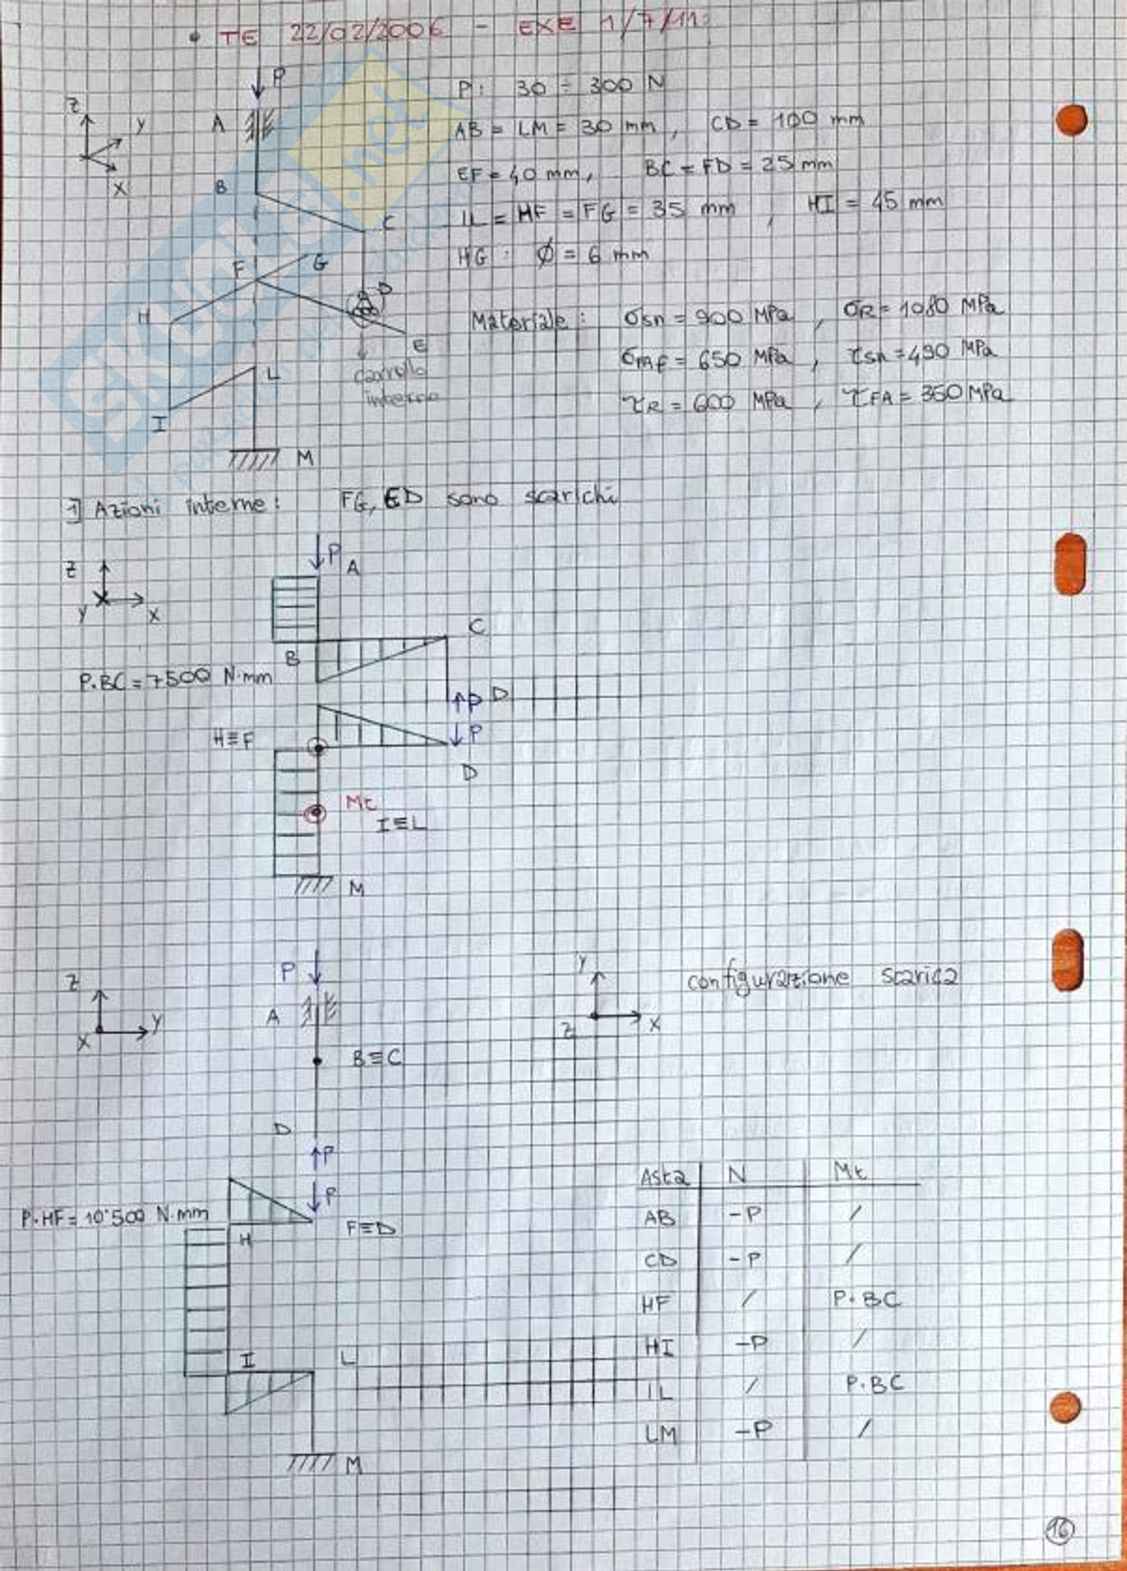 • TE 22/02/2006 - EXE 1/7/11:
P
Z
Y
X
A
B
C
F
G
D
H
E
L
I
M
carrello
interno
P: 30 ÷ 300 N
AB = LM = 30 mm, CD = 100 mm
EF = 40 mm, BC = FD = 25 mm
IL = HF = FG = 35 mm, HI = 45 mm
HG: Ø = 6 mm
Materiale: σsn = 900 MPa, σR = 1080 MPa
σmf = 650 MPa, τsn = 490 MPa
τR = 600 MPa, τFA = 350 MPa
1] Azioni interne: FG, ED sono scarichi
Z
Y
X
P
A
C
B
P·BC = 7500 N·mm
P
D
H≡F
P
D
Mt
I≡L
M
Z
X
Y
P
A
B≡C
D
P
P
P·HF = 10'500 N·mm
F≡D
H
I
L
M
Y
Z
X
configurazione scarica
Asta N Mt
AB -P /
CD -P /
HF / P·BC
HI -P /
IL / P·BC
LM -P /
16